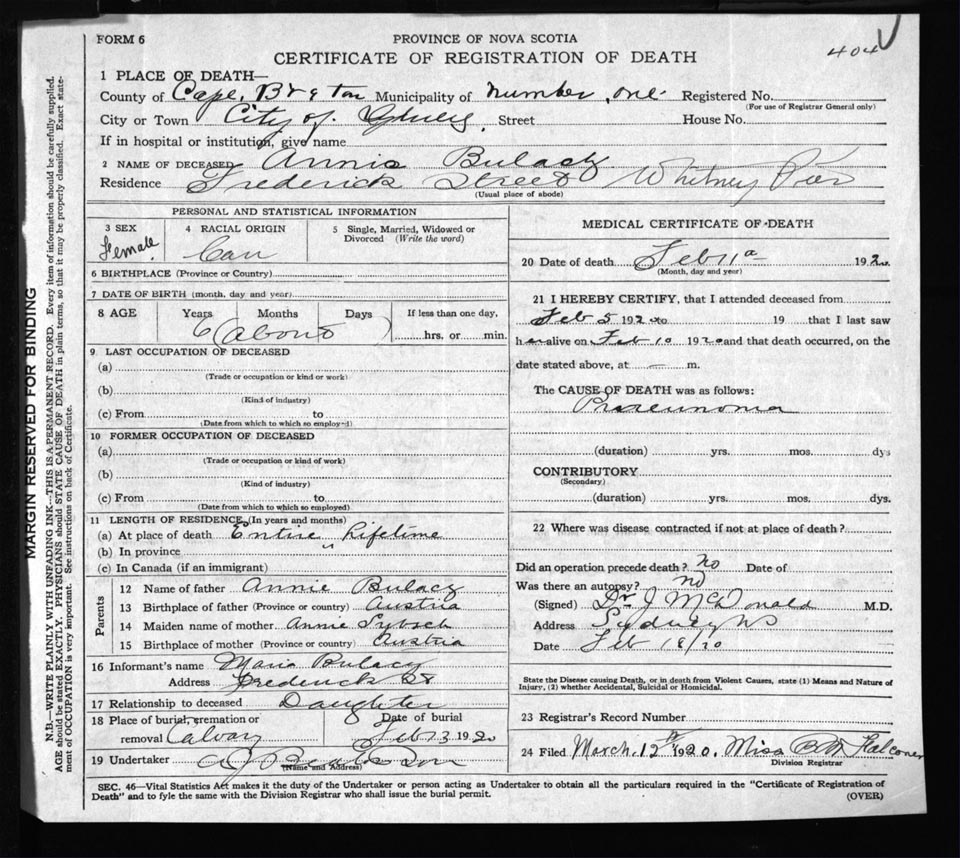 FORM 6
PROVINCE OF NOVA SCOTIA
404
CERTIFICATE OF REGISTRATION OF DEATH
1 PLACE OF DEATH—
County of Cape Breton Municipality of number one Registered No.
(For use of Registrar General only)
City or Town City of Street House No.
If in hospital or institution, give name
2 NAME OF DECEASED Annie Bulacz
Residence Frederick Street Whitney Pier
(Usual place of abode)
PERSONAL AND STATISTICAL INFORMATION
3 SEX 4 RACIAL ORIGIN 5 Single, Married, Widowed or
Divorced (Write the word)
Female Can
6 BIRTHPLACE (Province or Country)
7 DATE OF BIRTH (month, day and year)
8 AGE Years Months Days If less than one day,
6 (about) hrs. or min.
9 LAST OCCUPATION OF DECEASED
(a)
(Trade or occupation or kind or work)
(b)
(Kind of industry)
(c) From to
(Date from which to which so employed)
10 FORMER OCCUPATION OF DECEASED
(a)
(Trade or occupation or kind of work)
(b)
(Kind of industry)
(c) From to
(Date from which to which so employed)
11 LENGTH OF RESIDENCE (In years and months)
(a) At place of death Entire Lifetime
(b) In province "
(c) In Canada (if an immigrant)
Parents
12 Name of father Annie Bulacz
13 Birthplace of father (Province or country) Austria
14 Maiden name of mother Annie
15 Birthplace of mother (Province or country) Austria
16 Informant's name Maria Bulacz
Address Frederick St
17 Relationship to deceased Daughter
18 Place of burial, cremation or Date of burial
removal Calvary Feb 13 1920
19 Undertaker A J Beaton Son
(Name and Address)
MEDICAL CERTIFICATE OF DEATH
20 Date of death Feb 11 1920
(Month, day and year)
21 I HEREBY CERTIFY, that I attended deceased from
Feb 5 1920 to 19 that I last saw
her alive on Feb 10 1920 and that death occurred, on the
date stated above, at — m.
The CAUSE OF DEATH was as follows:
Pneumonia
(duration) yrs. mos. dys
CONTRIBUTORY
(Secondary)
(duration) yrs. mos. dys.
22 Where was disease contracted if not at place of death?
Did an operation precede death? No Date of
Was there an autopsy? No
(Signed) Dr J McDonald M.D.
Address Sydney NS
Date Feb 18/20
State the Disease causing Death, or in death from Violent Causes, state (1) Means and Nature of
Injury, (2) whether Accidental, Suicidal or Homicidal.
23 Registrar's Record Number
24 Filed March 12th 1920. Miss Falconer
Division Registrar
SEC. 46—Vital Statistics Act makes it the duty of the Undertaker or person acting as Undertaker to obtain all the particulars required in the "Certificate of Registration of
Death" and to fyle the same with the Division Registrar who shall issue the burial permit.
(OVER)
MARGIN RESERVED FOR BINDING
N.B.—WRITE PLAINLY WITH UNFADING INK—THIS IS A PERMANENT RECORD. Every item of information should be carefully supplied.
AGE should be stated EXACTLY. PHYSICIANS should STATE CAUSE OF DEATH in plain terms, so that it may be properly classified. Exact state-
ment of OCCUPATION is very important. See instructions on back of Certificate.